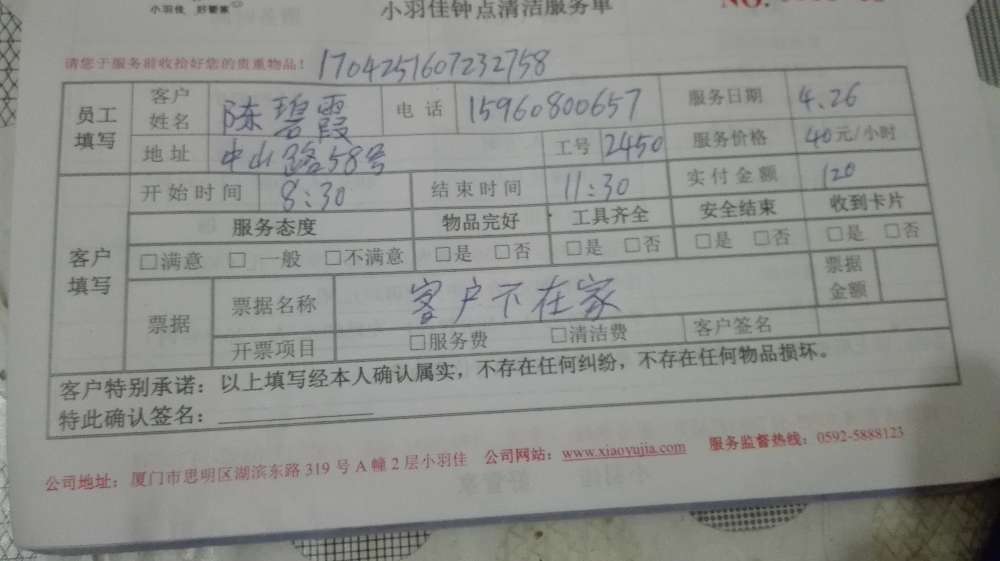 小羽佳 好管家
小羽佳钟点清洁服务单
NO.
请您于服务前收拾好您的贵重物品! 1704251607232758
员工填写 客户姓名 陈碧霞 电话 15960800657 服务日期 4.26
地址 中山路58号 工号 2450 服务价格 40元/小时
客户填写 开始时间 8:30 结束时间 11:30 实付金额 120
服务态度 物品完好 工具齐全 安全结束 收到卡片
□满意 □一般 □不满意 □是 □否 □是 □否 □是 □否 □是 □否
票据 票据名称 客户不在家 票据金额
开票项目 □服务费 □清洁费 客户签名
客户特别承诺：以上填写经本人确认属实，不存在任何纠纷，不存在任何物品损坏。
特此确认签名：
公司地址：厦门市思明区湖滨东路319号A幢2层小羽佳 公司网站：www.xiaoyujia.com 服务监督热线：0592-5888123